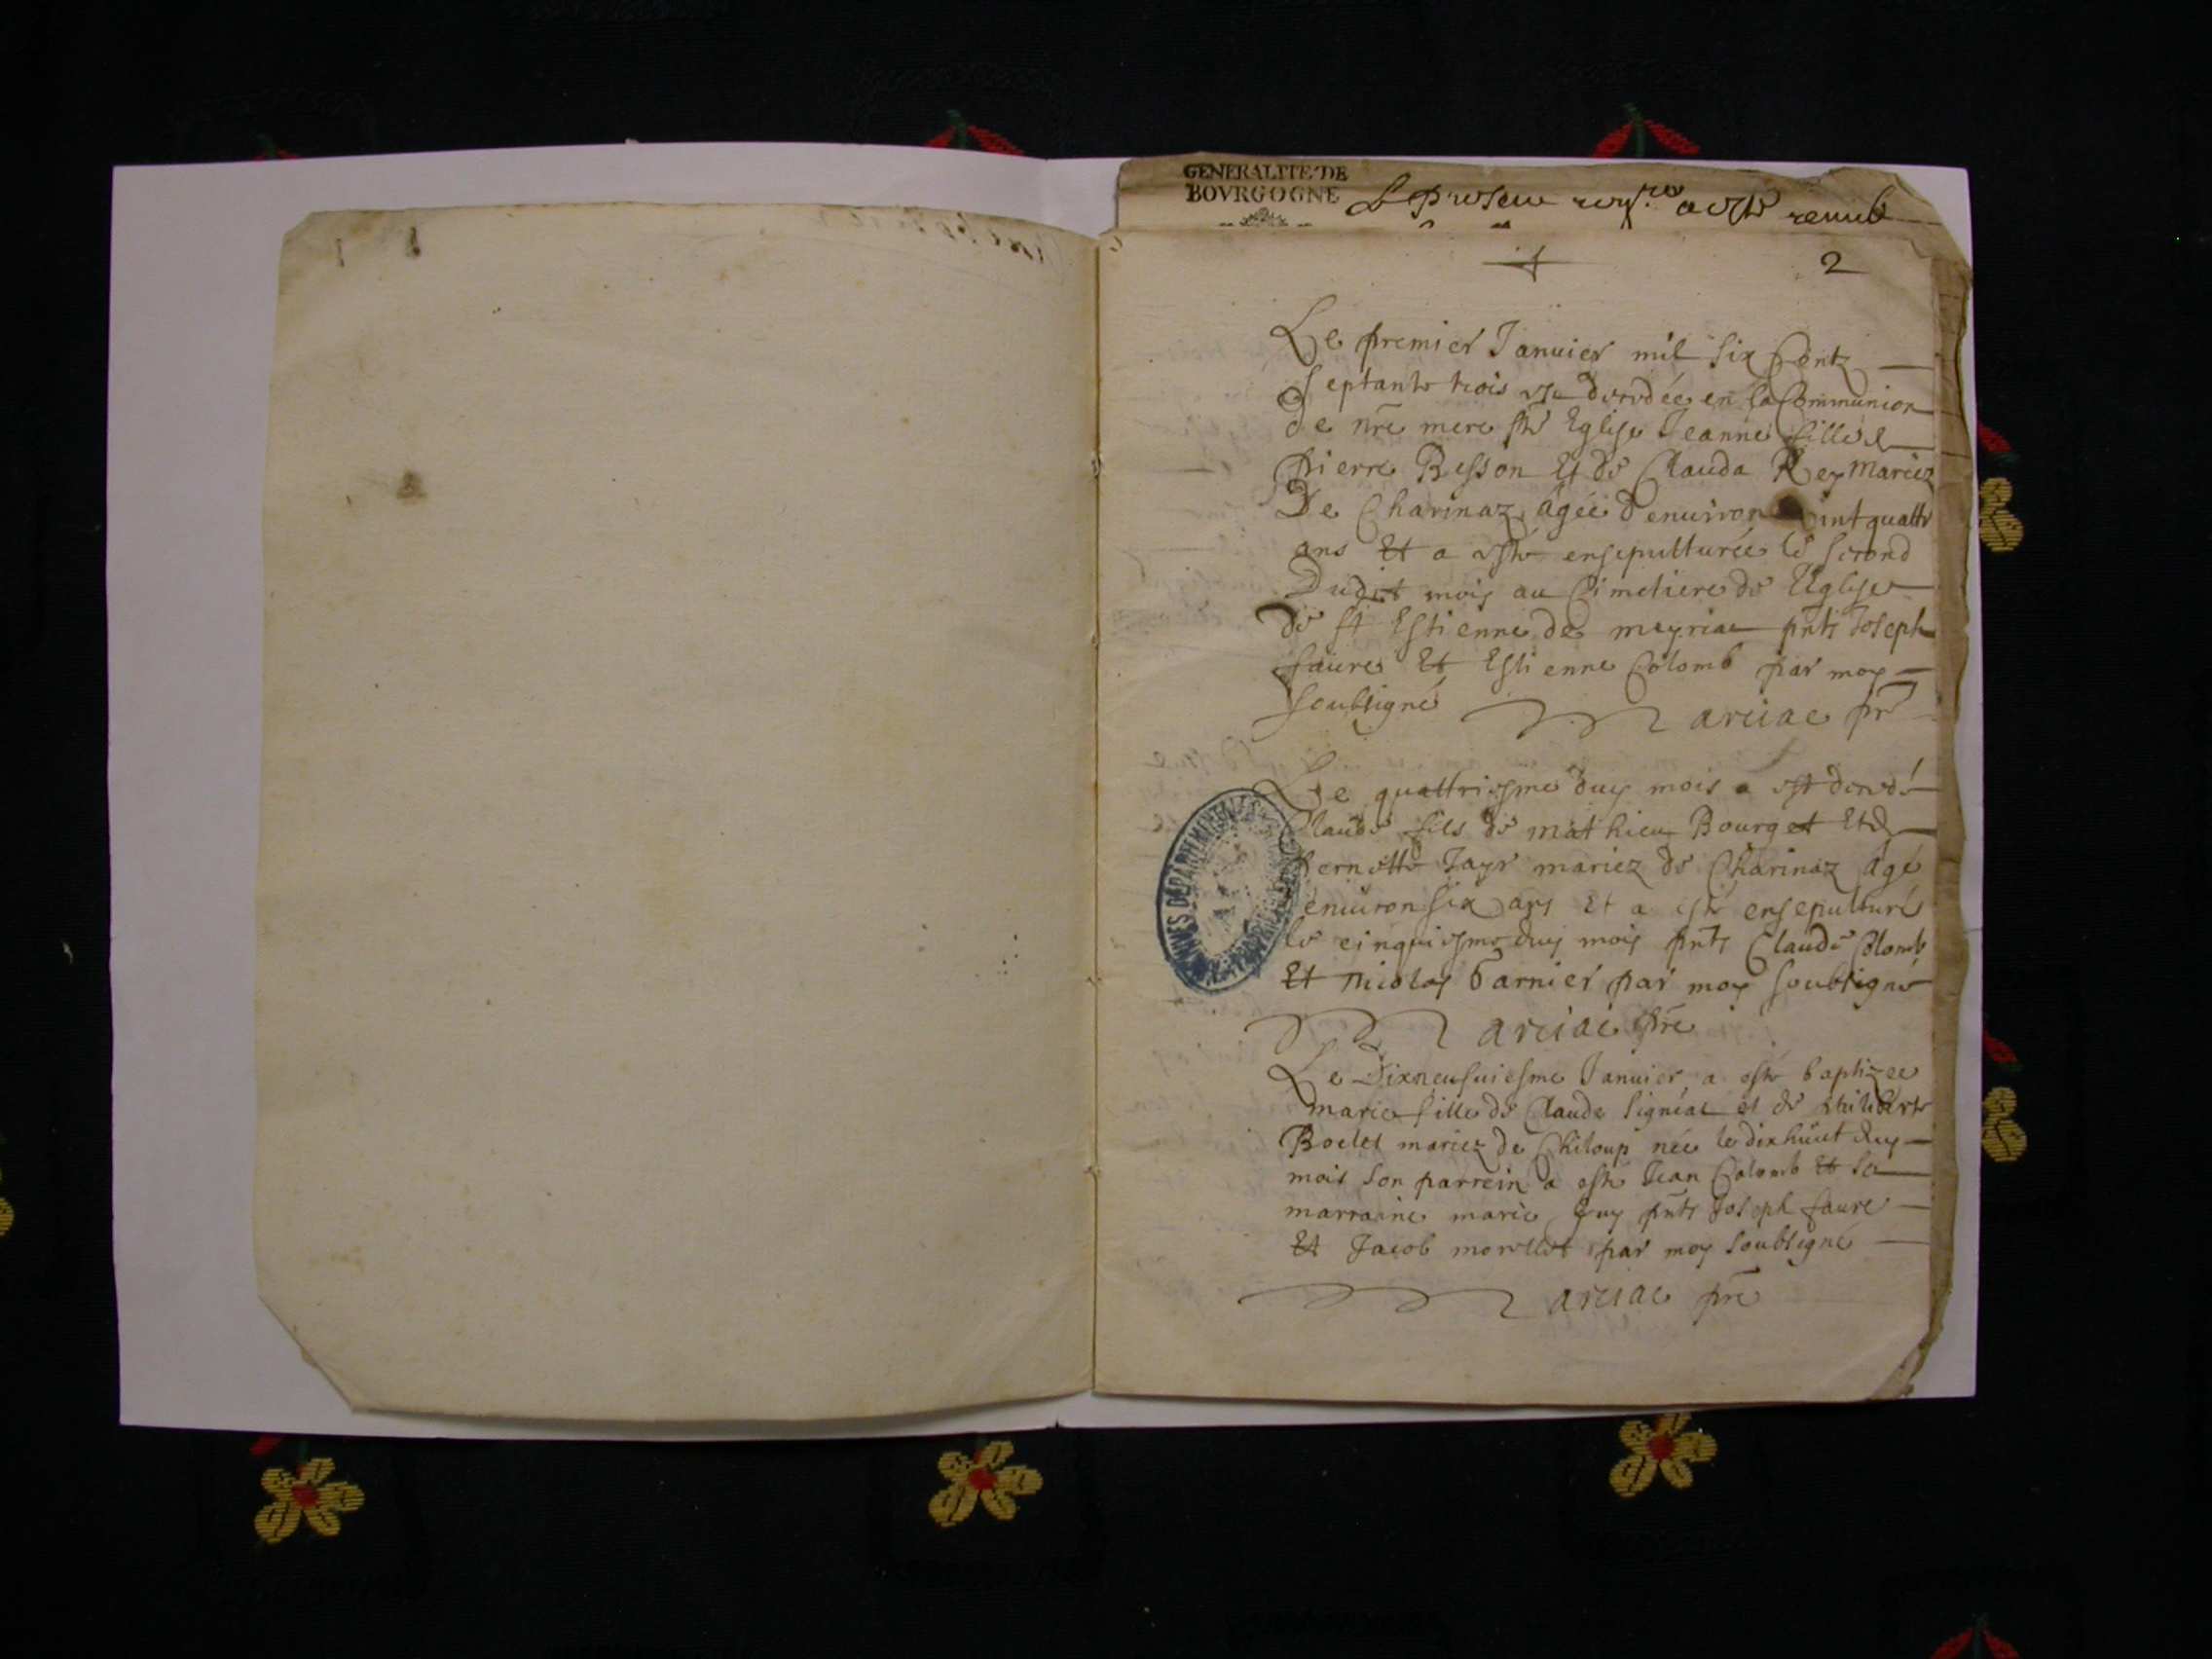 GENERALITE DE
BOVRGOGNE
Le present a esté remis
2
Le premier Januier mil six Centz
septante trois est decedée en la Communion
de nre mere ste Eglise Jeanne fille de
pierre Besson Et de Clauda Rey Mariez
De Charinaz agée d'enuiron vint quattr
ans Et a esté ensepulturée le second
Dudit mois au Cimetiere de l'Eglise
de st Estienne de meyriac pnts Joseph
faure Et Estienne Colomb par moy
soubsigné Marciac pre
Le quattriesme duy mois a est decedé
Claude fils de mathieu Bourget Et de
pernette Jayr mariez de Charinaz agé
enuiron six ans Et a esté ensepulturé
le cinquiesme duy mois pnts Claude Colomb
Et nicolas Garnier par moy soubsigné
Marciac pre
Le Dixneufuiesme Januier a esté baptizee
marie fille de Claude Signéac et de philiberte
Boelet mariez de Chiloup née le dixhuiict duy
mois son parrein a esté Jean Colomb Et sa
marraine marie Guy pnts Joseph faure
Et Jacob morellet par moy soubsigné
Marciac pre
DEPARTEMENTALES